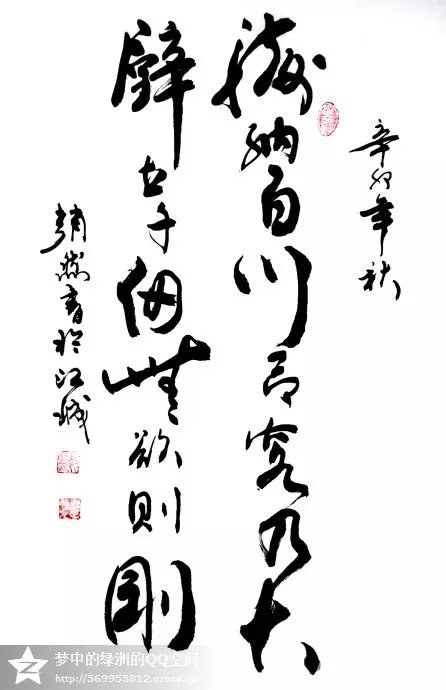 辛卯年秋
海納百川有容乃大
壁立千仞無欲則剛
趙書於江城
梦中的绿洲的QQ空间
http://569955812.qzone.qq.com